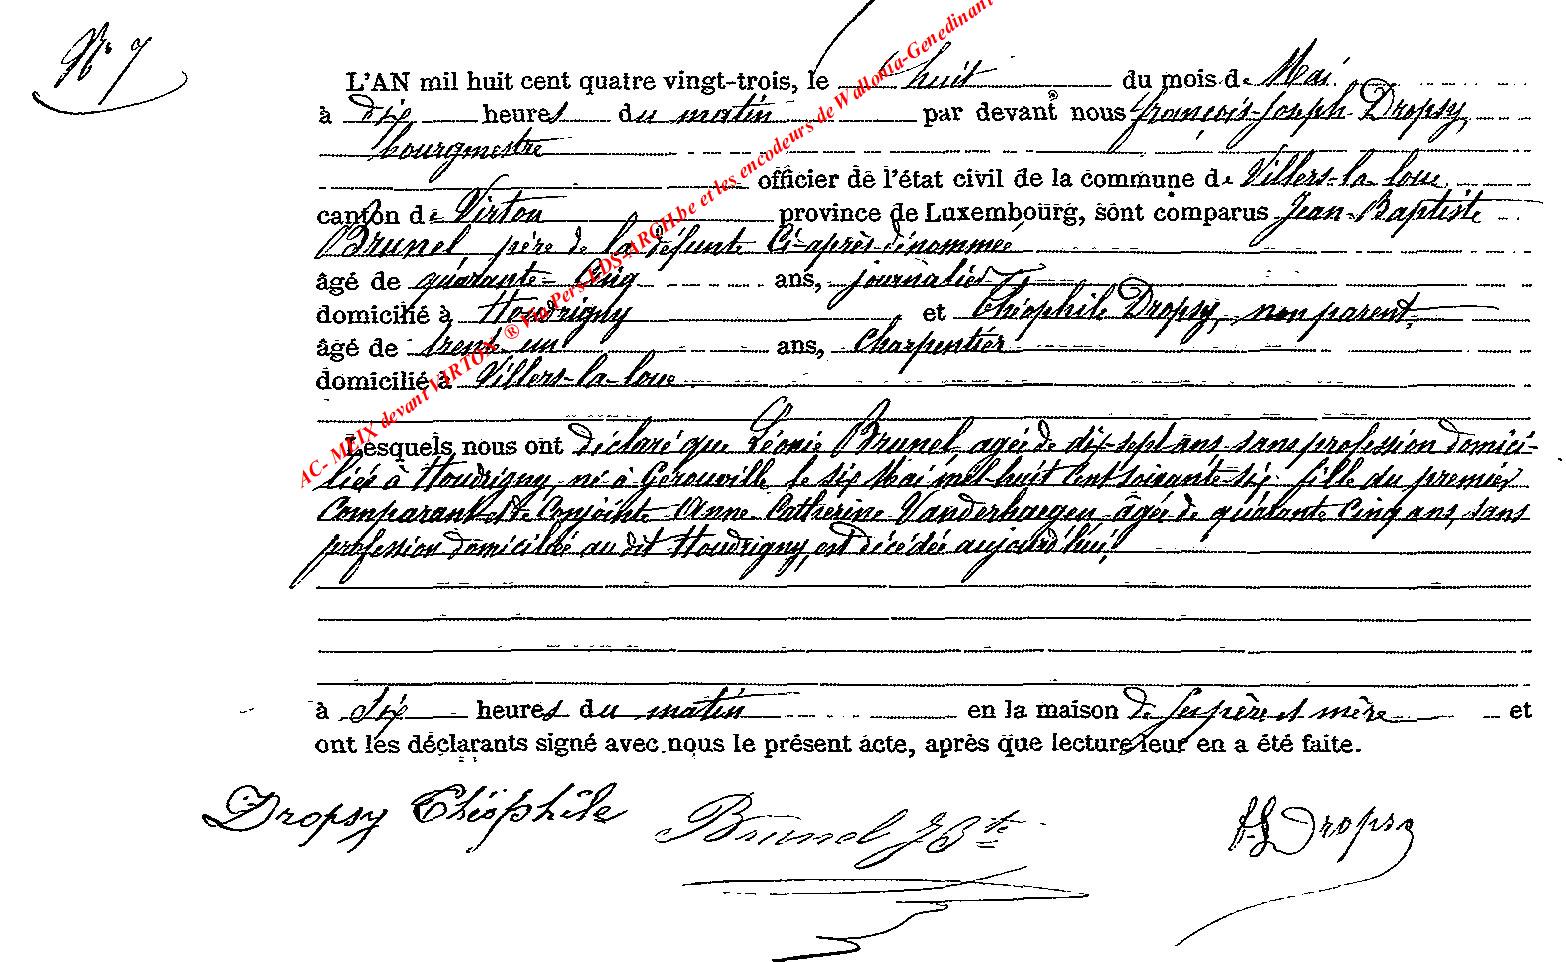 N° 7
L'AN mil huit cent quatre vingt-trois, le huit du mois de Mai
à dix heures du matin par devant nous françois-Joseph Dropsy,
bourgmestre
officier de l'état civil de la commune de Villers-la-loue
canton de Virton province de Luxembourg, sont comparus Jean-Baptiste
Brunel, père de la défunte Ci-après dénommée
âgé de quarante-Cinq ans, journalier
domicilié à Houdrigny et Théophile Dropsy, non parent,
âgé de trente un ans, Charpentier
domicilié à Villers-la-loue
Lesquels nous ont déclaré que Léonie Brunel, agée de dix-sept ans sans profession domici-
liée à Houdrigny, né à Gérouville le six Mai mil-huit Cent soixante-six fille du premier
Comparant et de Conjointe Anne-Catherine Vanderhaegen agée de quarante Cinq ans, sans
profession domiciliée au dit Houdrigny, est décédée aujourd'hui,
à Six heures du matin en la maison de ses père et mère et
ont les déclarants signé avec nous le présent acte, après que lecture leur en a été faite.
Dropsy Théophile Brunel J Bte fJ Dropsy
AC- MEIX devant VIRTON ® Via Pers LDS-ARCH.be et les encodeurs de Wallonia-Genedinant